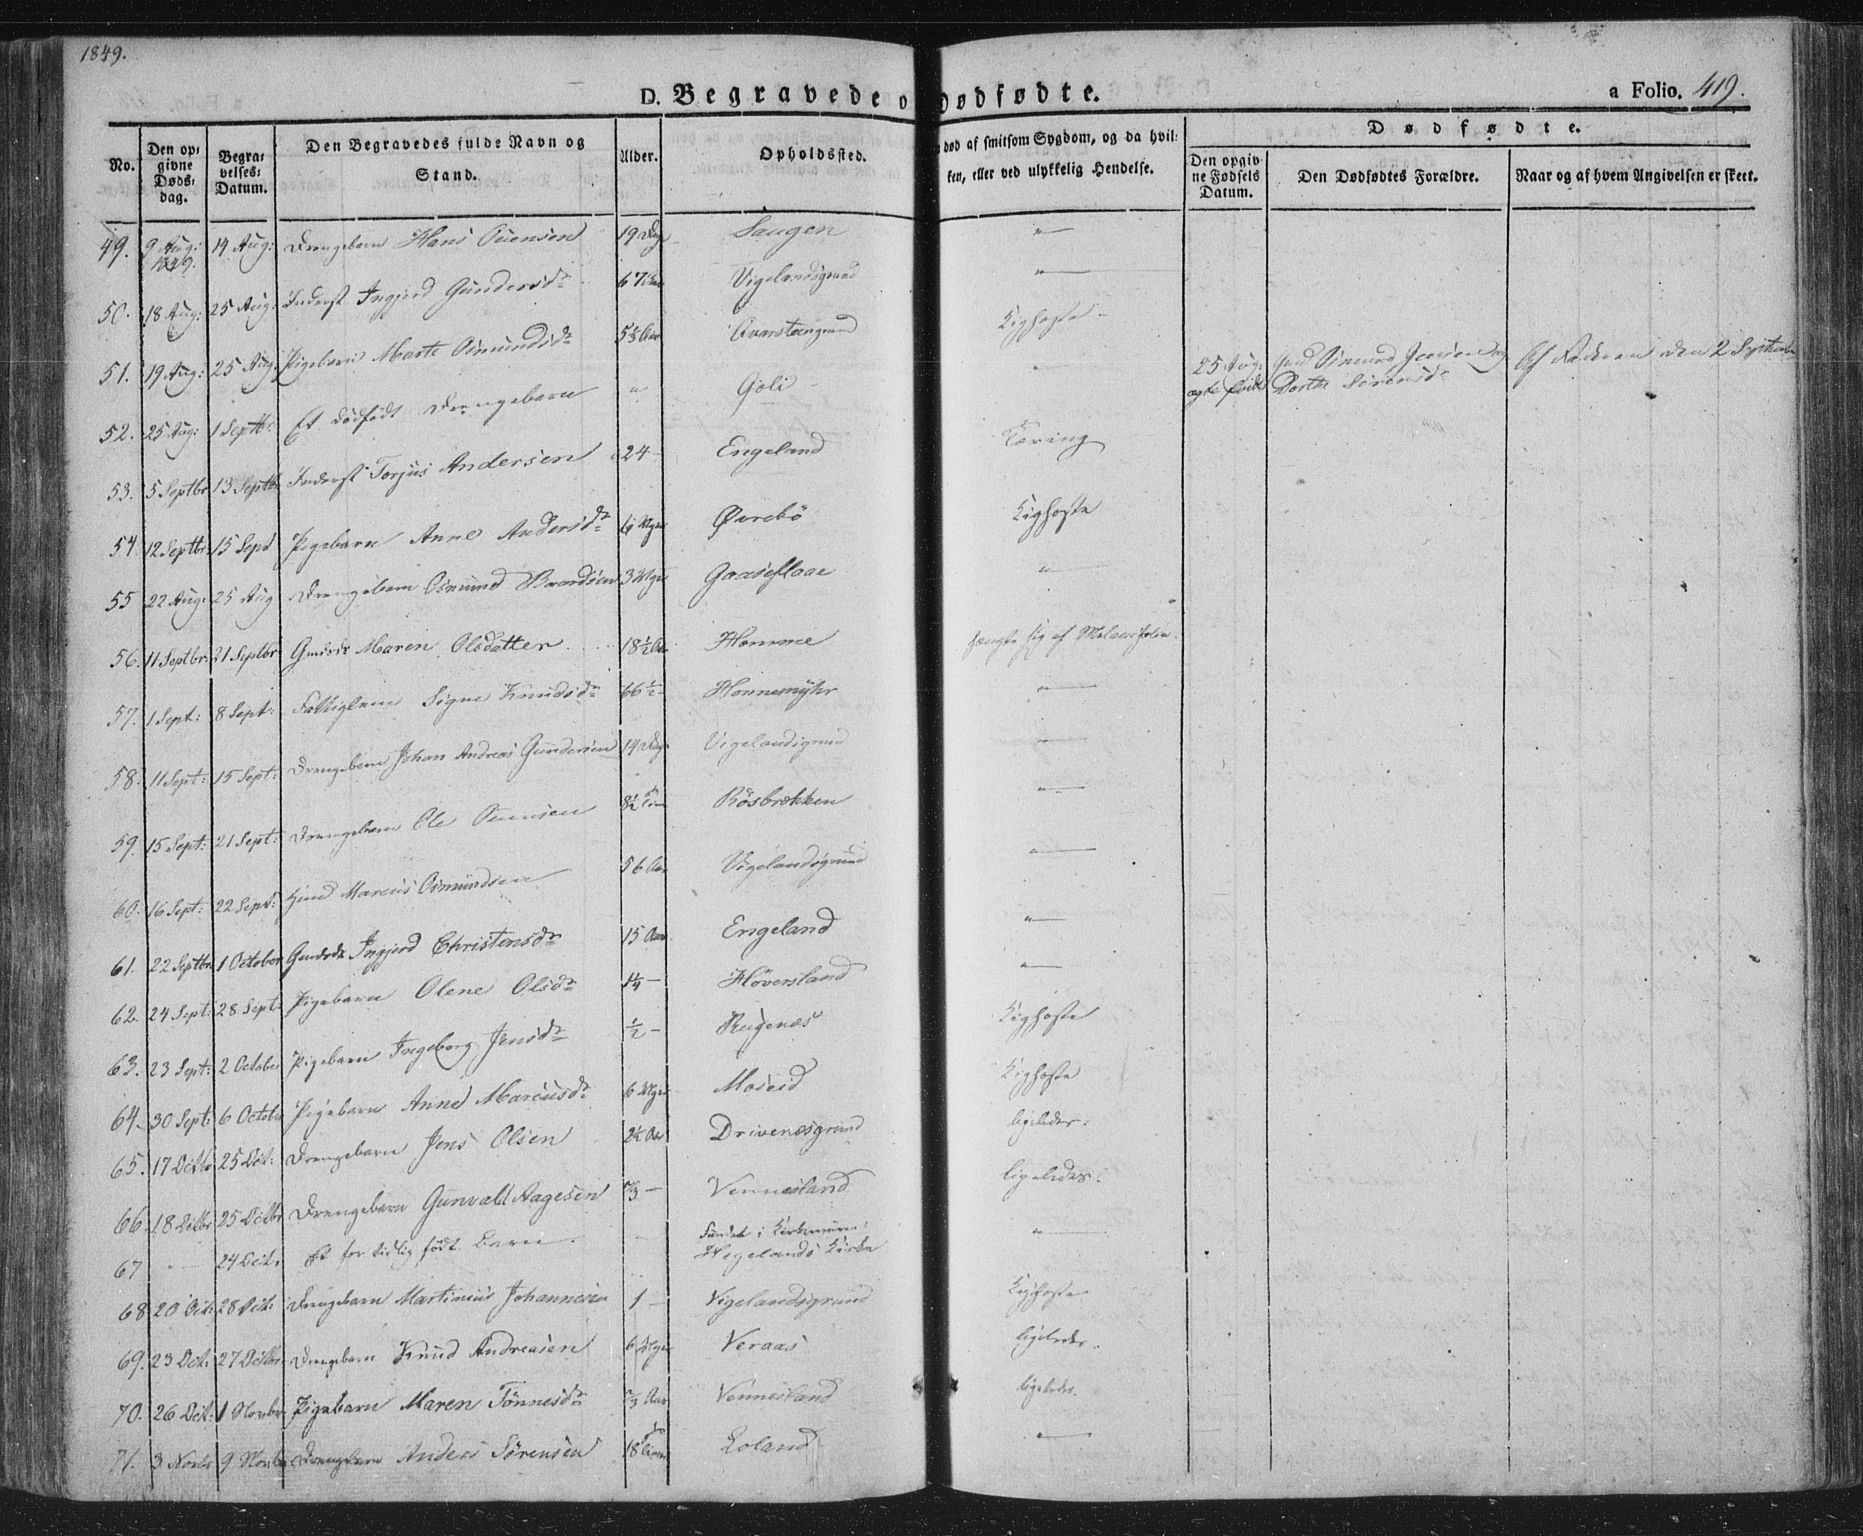 1849.
D. Begravede o Dødfødte.
a Folio. 419.
No.
Den op:
givne
Døds:
dag.
Begra:
velses:
Datum.
Den Begravedes fulde Navn og
Stand.
Alder.
Opholdssted.
død af smitsom Sygdom, og da hvil:
ken, eller ved ulykkelig Hendelse.
Dødfødte.
Den opgiv
ne Fødsels
Datum.
Den Dødfødtes Forældre.
Naar og af hvem Angivelsen er skeet.
49. 9 Aug: 1849. 14 Aug: Drengebarn Hans 19 Dage Saugen "
50. 18 Aug: 25 Aug: Inderst Ingjerd Gundersdr 67 Aar Vigelandsgrund "
51. 19 Aug: 25 Aug: Pigebarn Marte Osmundsdr Aar Qvarsteengrund Kighoste
52. 25 Aug: 1 Septbr: Et dødfødt Drengebarn " Goli " 25 Aug: ægte født Gmd Osmund Jensen og Dorthe Sörensdr Af Faderen den 2 Septembr
53. 5 Septbr 13 Septbr Inderst Torjus Andersen 24 - Engeland Tæring
54. 12 Septbr 15 Sept Pigebarn Anne Andersdr 6 Uger Øvrebö Kighoste
55 22 Aug: 25 Aug Drengebarn Osmund Baardsen 3 Uger Gaaseflaae "
56. 11 Septbr: 21 Septbr Gmdsdr Maren Olsdatter 18½ Aar Homme hængte sig af Melancholie.
57. 1 Sept: 8 Sept: Fattiglem Signe Knudsdr 66½ - Honnemyhr "
58. 11 Sept: 15 Sept: Drengebarn Johan Andreas Gundersen 14 Dage Vigelandsgrund "
59. 15 Sept: 21 Sept: Drengebarn Ole 8½ Rösbrækken "
60. 16 Sept: 22 Sept: Hmd Marcus Osmundsen 56 Aar Vigelandsgrund "
61. 22 Septbr 1 October Gmdsdr Ingjerd Christensdr 15 Aar Engeland "
62. 24 Sept: 28 Sept: Pigebarn Olene Olsdr 1¼ - Höversland "
63. 23 Sept: 2 October Pigebarn Ingeborg Jensdr ½ - Rugenæs Kighoste
64. 30 Sept: 6 October Pigebarn Anne Marcusdr 6 Uger Moseid Kighoste
65. 17 Octbr 25 Oct: Drengebarn Jens Olsen 2¼ Aar Drivenesgrund ligeledes:
66. 18 Octbr 25 Octbr Drengebarn Gunvald Aagesen ⅔ - Vennesland ligeledes:
67 " 24 Oct. Et for tidlig födt Barn. Fundet i Kirkemuren: Vigelands Kirke "
68 20 Oct: 28 Oct: Drengebarn Martinius Johannesen 1 - Vigelandsgrund Kighoste
69. 23 Oct: 27 Octbr: Drengebarn Knud Andreasen 6 Uger Veraas ligeledes.
70. 26 Oct: 1 Novbr Pigebarn Maren Tönnesdr ⅔ Aar Vennesland ligeledes.
71. 3 Novbr 9 Novbr Drengebarn Anders Sörensen 18 Timer Loland "